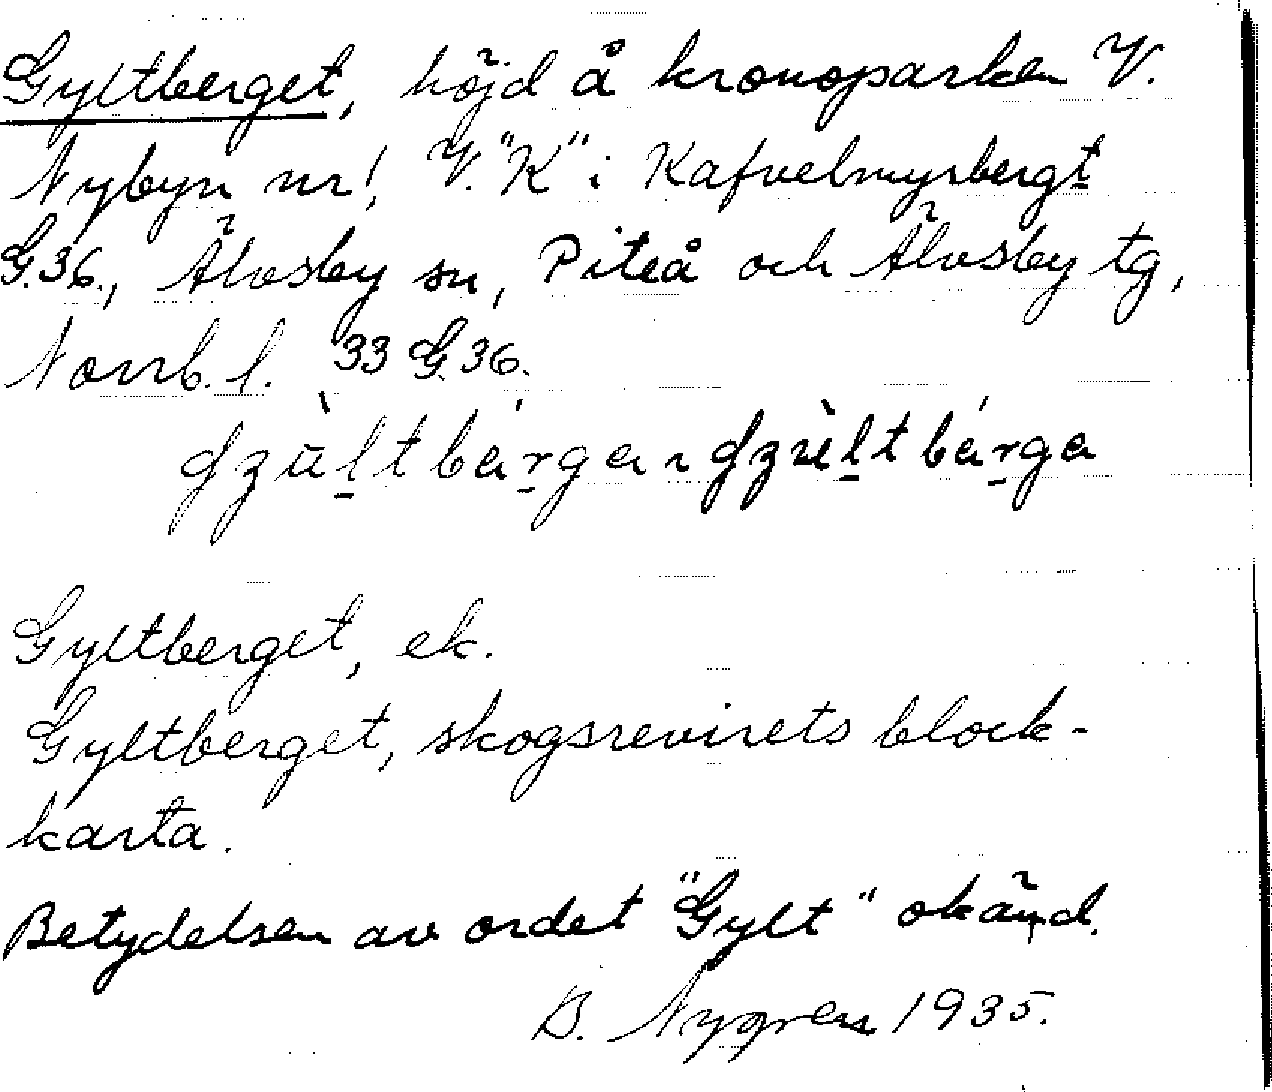 Gyltberget, höjd å kronoparken V.
Nybyn nr 1 V. "K" i Kafvelmyrbergt
G.36., Älvsby sn, Piteå och Älvsby tg,
Norrb. l. 33 G.36.
Gyltberget, ek.
Gyltberget, skogsrevirets block-
karta.
Betydelsen av ordet "Gylt" okänd.
B. Nygren 1935.